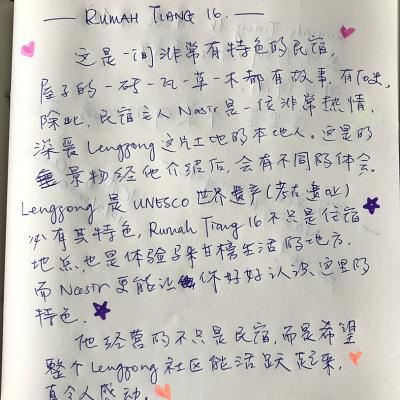 — RUMAH TIANG 16. —
这是一间非常有特色的民宿,
屋子的一砖一瓦一草一木都有故事,有历史,
除此,民宿主人 Nasir 是一位非常热情,
深爱 Lenggong 这片土地的本地人。这里的
景物经他介绍后,会有不同的体会。
Lenggong 是 UNESCO 世界遗产(考古遗址)
必有其特色, Rumah Tiang 16 不只是住宿
地点,也是体验马来甘榜生活的地方.
而 Nasir 更能让你好好认识这里的
特色.
他经营的不只是民宿,而是希望
整个 Lenggong 社区能活跃起来,
真令人感动.